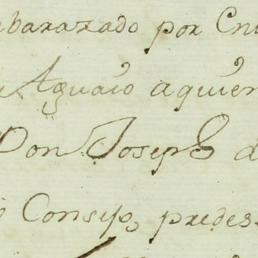 mbarazado por
Aguaio aquien
Don Joseph d
Consejo, predes